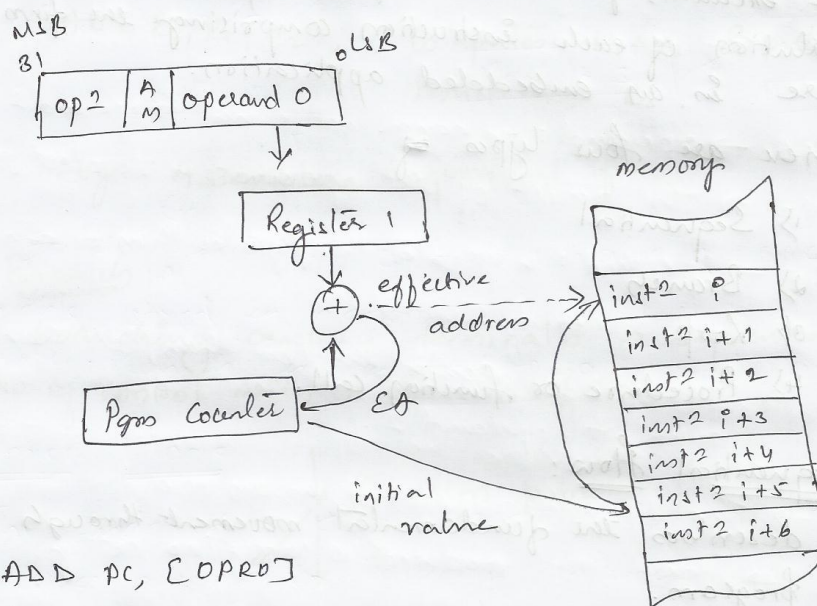 MSB
31
0 LSB
opⁿ
AM
operand 0
Register 1
+
effective
address
Pgm Counter
EA
initial
value
memory
instⁿ i
instⁿ i+1
instⁿ i+2
instⁿ i+3
instⁿ i+4
instⁿ i+5
instⁿ i+6
ADD PC, [OPR0]